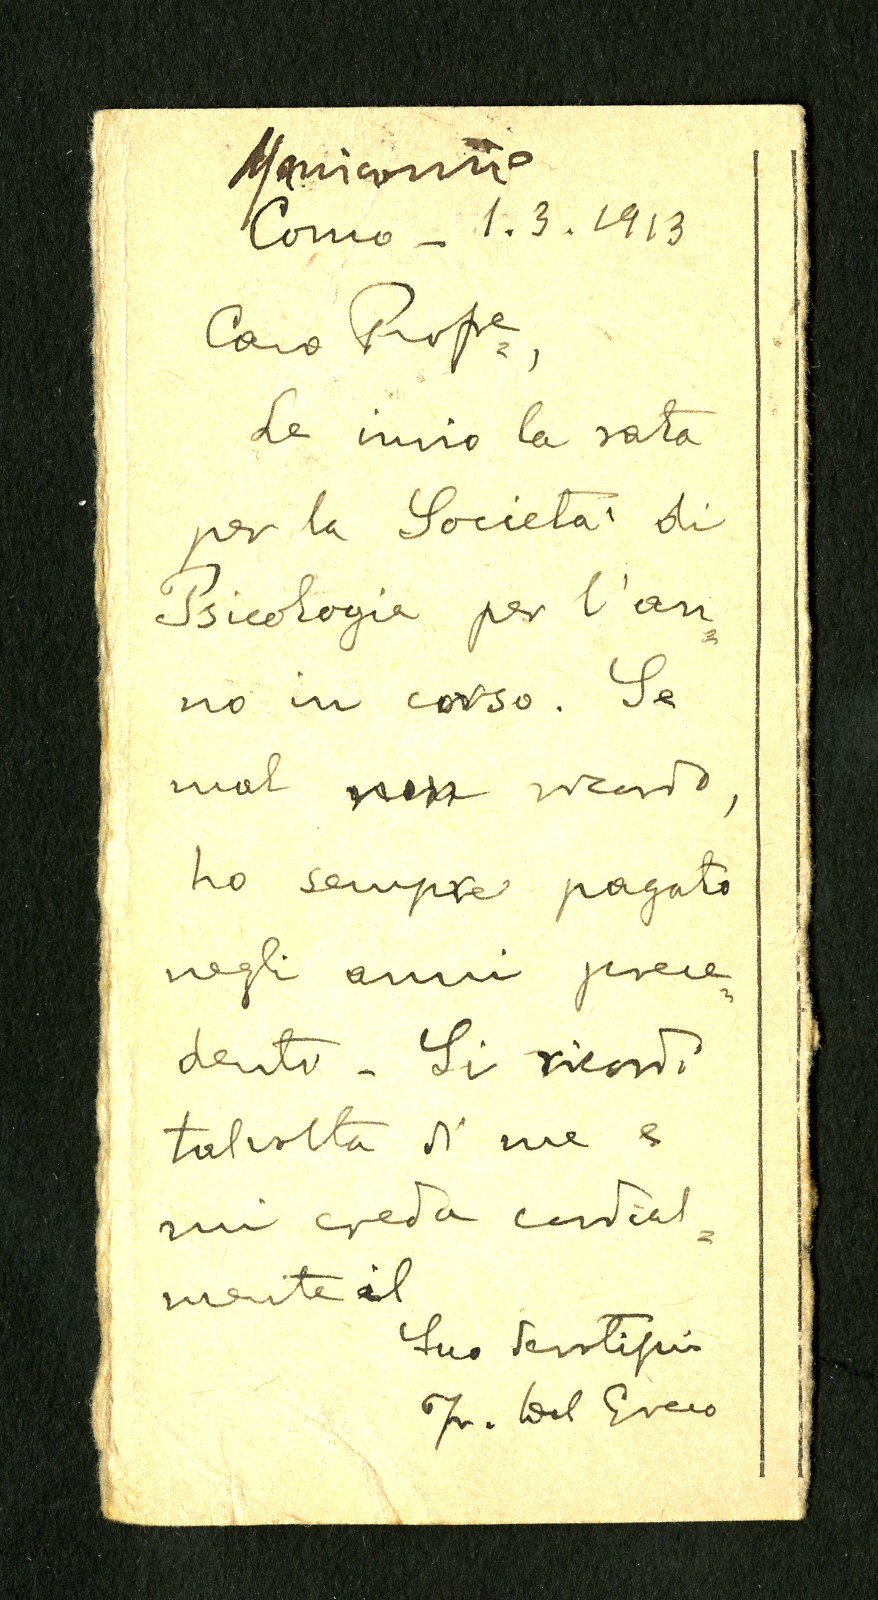 Manicomio
Como - 1.3.1913
Caro Profre,
Le invio la rata
per la Società di
Psicologia per l'an=
no in corso. Se
mal non ricordo,
ho sempre pagato
negli anni prece=
denti - Si ricordi
talvolta di me e
mi creda cordial=
mente il
Suo devotissimo
Fr. Del Greco